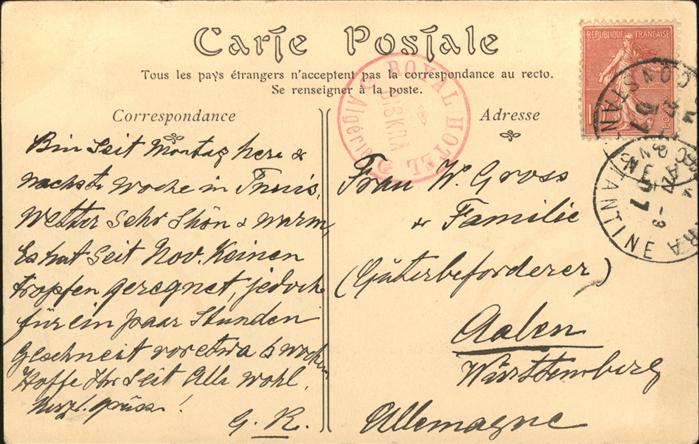 Carte Postale
Tous les pays étrangers n'acceptent pas la correspondance au recto.
Se renseigner à la poste.
Correspondance
Bin Seit Montag here &
nachste Woche in Tunis,
Wetter Sehr Shön & warm,
Es hat Seit Nov. Keinen
tropfen geregnet, jedoch
für ein paar Stunden
Geschneit vor etwa 6 woch
Hoffe Ihr Seit Alle wohl,
Herzl. Grüsse!
G. R.
Adresse
Frau W. Gross
& Familie
(Güterbeforderer)
Aalen
Württemberg
Allemagne
ROYAL HOTEL
BISKRA
Algérie
REPUBLIQUE FRANÇAISE
CONSTANTINE
07